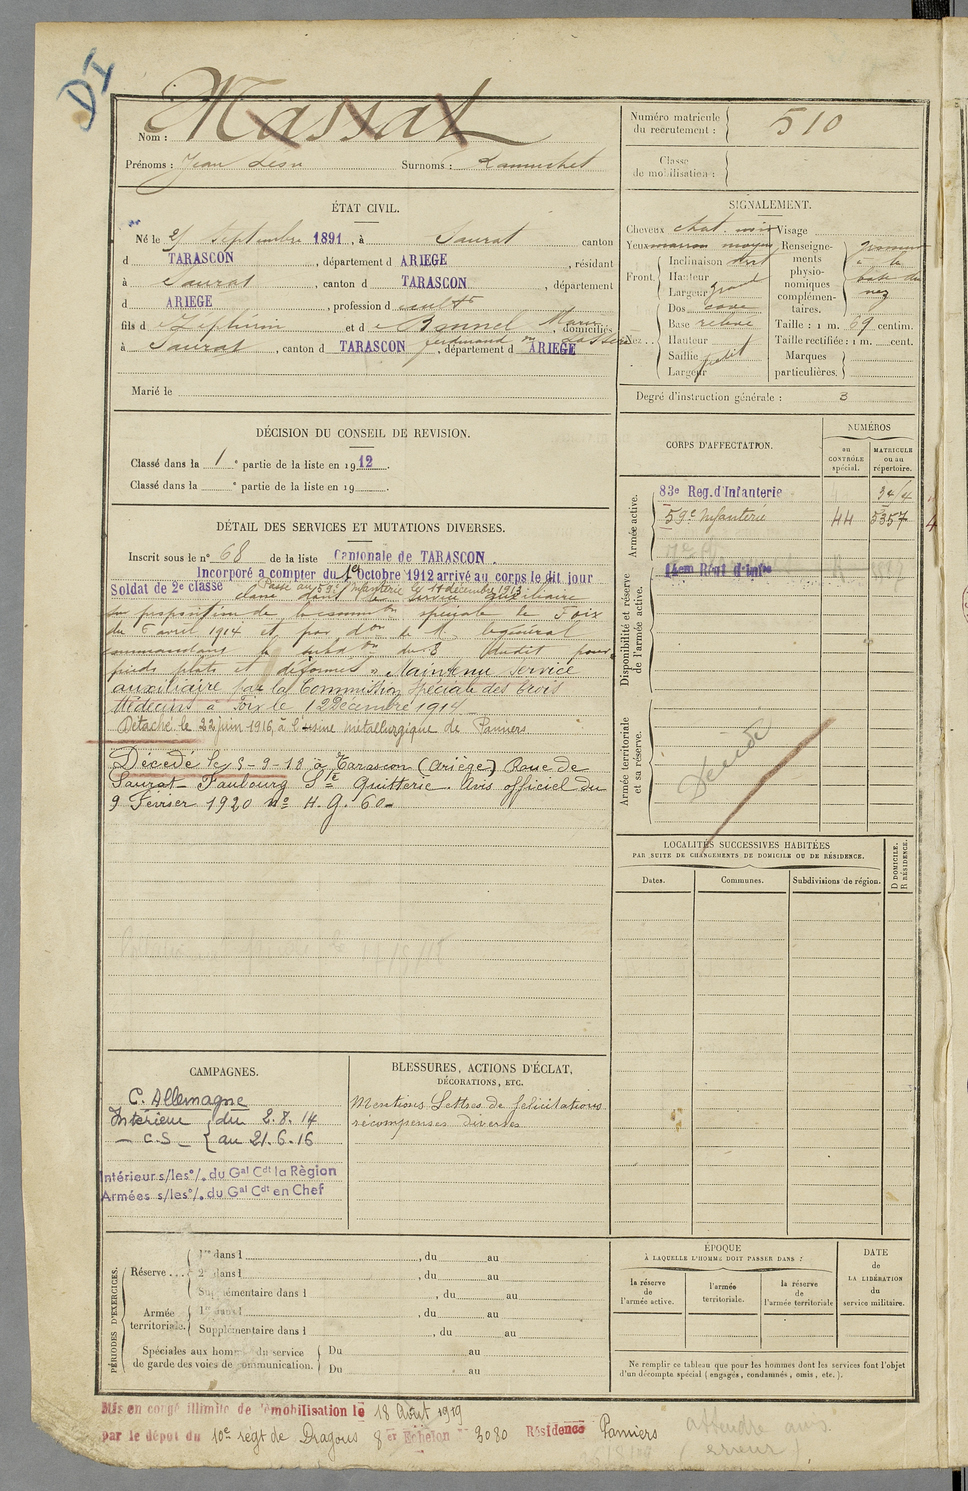 DI
Nom : Massat
Prénoms : Jean Léon Surnoms :
Numéro matricule du recrutement : 510
Classe de mobilisation :
ÉTAT CIVIL.
Né le 25 septembre 1891, à Saurat canton
d TARASCON, département d ARIEGE, résidant
à Saurat, canton d TARASCON, département
d ARIEGE, profession d cult^r
fils d Zéphirin et d Bonnel Marie, domiciliés
à Saurat, canton d TARASCON, département d ARIEGE
Marié le
SIGNALEMENT.
Cheveux chat. noir Visage
Yeux marron moyen
Front. Inclinaison vert
Hauteur
Largeur grand
Nez. Dos cave
Base relevé
Hauteur
Saillie petit
Largeur
Renseignements physionomiques complémentaires. à la base du nez
Taille : 1 m. 69 centim.
Taille rectifiée : 1 m. cent.
Marques particulières.
Degré d'instruction générale : 3
DÉCISION DU CONSEIL DE REVISION.
Classé dans la 1^e partie de la liste en 1912.
Classé dans la ^e partie de la liste en 19 .
DÉTAIL DES SERVICES ET MUTATIONS DIVERSES.
Inscrit sous le n° 68 de la liste Cantonale de TARASCON.
Incorporé a compter du 1er Octobre 1912 arrivé au corps le dit jour
Soldat de 2e classe Passé au 59e Infanterie le 14 décembre 1913
classé dans le service auxiliaire
sur proposition de la comm^on spéciale de Foix
du 6 avril 1914 et par d^on de M. le général
commandant la subd^on du S dudit pour
pieds plats et déformés". Maintenu service
auxiliaire par la Commission Spéciale des trois
Médecins à Foix le 12 Décembre 1914
Détaché le 22 juin 1916, à l'usine métallurgique de Pamiers.
Décédé le 3-9-18 à Tarascon (Ariège) Route de
Saurat - Faubourg Ste Quitterie. Avis officiel du
9 Février 1920 n° H.G. 60-
CORPS D'AFFECTATION.
NUMÉROS
au CONTRÔLE spécial.
MATRICULE ou au répertoire.
Armée active.
83e Reg. d'Infanterie 3414
59e Infanterie 44 5357
Disponibilité et réserve de l'armée active.
14em Régt d'Infie
Armée territoriale et sa réserve.
Décédé
LOCALITÉS SUCCESSIVES HABITÉES
PAR SUITE DE CHANGEMENTS DE DOMICILE OU DE RÉSIDENCE.
Dates. Communes. Subdivisions de région. D DOMICILE. R RÉSIDENCE.
CAMPAGNES.
C. Allemagne
Intérieur du 2.8.14
- C.S - au 21.6.16
Intérieur s/les °/. du Gal Cdt la Région
Armées s/les °/. du Gal Cdt en Chef
BLESSURES, ACTIONS D'ÉCLAT,
DÉCORATIONS, ETC.
Mentions Lettres de félicitations
récompenses diverses
PÉRIODES D'EXERCICES.
Réserve ... 1re dans l , du au
2e dans l , du au
Supplémentaire dans l , du au
Armée territoriale. 1re dans l , du au
Supplémentaire dans l , du au
Spéciales aux hommes du service Du au
de garde des voies de communication. Du au
ÉPOQUE
À LAQUELLE L'HOMME DOIT PASSER DANS :
la réserve de l'armée active.
l'armée territoriale.
la réserve de l'armée territoriale
DATE de LA LIBÉRATION du service militaire.
Ne remplir ce tableau que pour les hommes dont les services font l'objet
d'un décompte spécial (engagés, condamnés, omis, etc.).
Mis en congé illimité de démobilisation le 18 Août 1919
par le dépot du 10e régt de Dragons 8er Echelon n° 3080 Résidence Pamiers
(erreur)